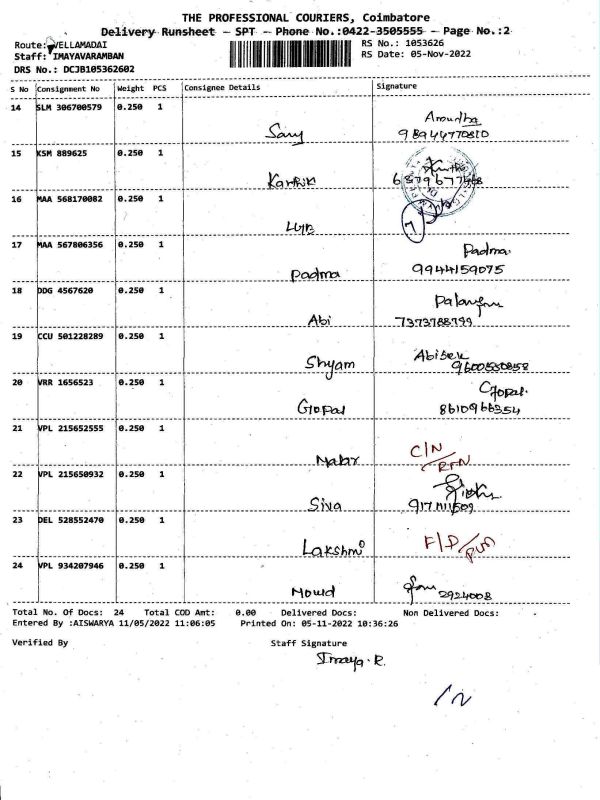 THE PROFESSIONAL COURIERS, Coimbatore
Delivery Runsheet - SPT - Phone No.:0422-3505555 - Page No.:2
Route: VELLAMADAI
RS No.: 1053626
Staff: IMAYAVARAMBAN
RS Date: 05-Nov-2022
DRS No.: DCJB105362602
S No Consignment No Weight PCS Consignee Details Signature
14 SLM 306700579 0.250 1
Sany 98944770810
15 KSM 889625 0.250 1
Karthik
16 MAA 568170082 0.250 1
17 MAA 567806356 0.250 1
Padma.
Padma 9944159075
18 DDG 4567620 0.250 1
Abi 7373788799
19 CCU 501228289 0.250 1
Shyam
20 VRR 1656523 0.250 1
Gopal.
Gopal 8610966354
21 VPL 215652555 0.250 1
C/N
RTN
22 VPL 215650932 0.250 1
Siva
23 DEL 528552470 0.250 1
Lakshmi
24 VPL 934207946 0.250 1
2924008
Total No. Of Docs: 24 Total COD Amt: 0.00 Delivered Docs: Non Delivered Docs:
Entered By :AISWARYA 11/05/2022 11:06:05 Printed On: 05-11-2022 10:36:26
Verified By Staff Signature
Imaya. R.